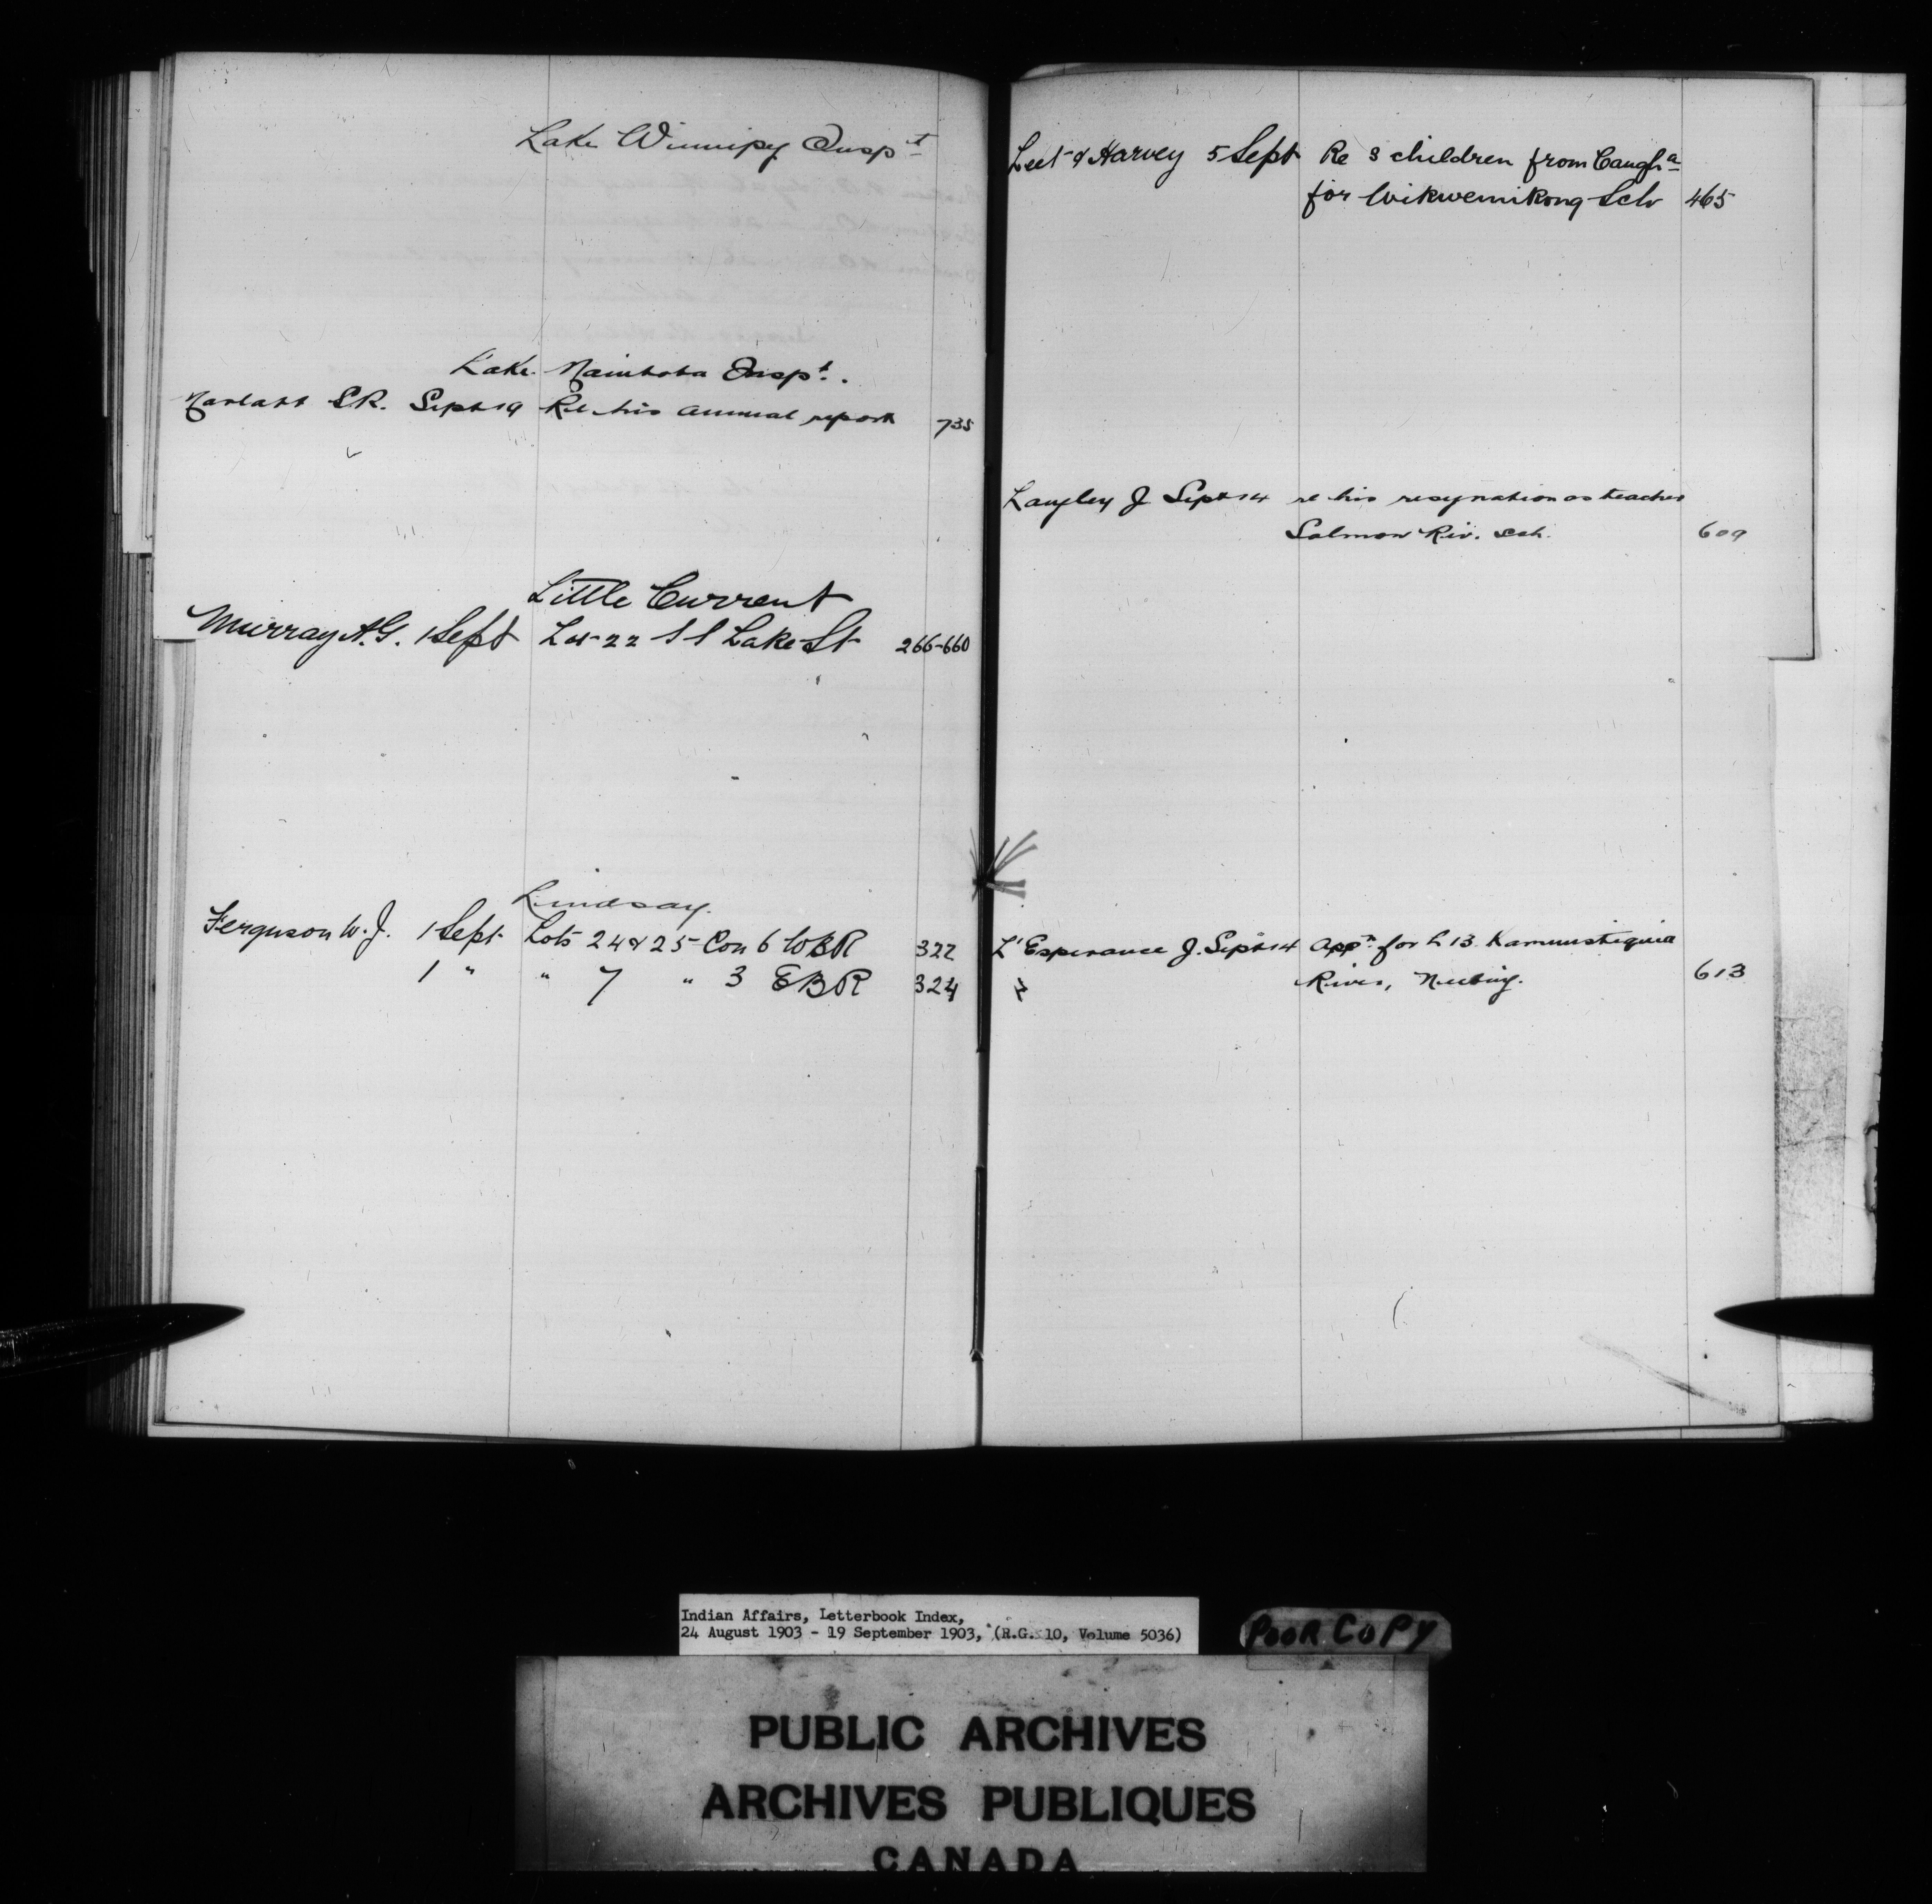 Lake Winnipg Inspt
Lake Manitoba Inspt.
Marlatt S.R. Sept 19 Re his annual report 735
Little Current
Murray A.G. 1 Sept Lot 22 S S Lake St 266-660
Lindsay.
Ferguson W.J. 1 Sept Lots 24 & 25 Con 6 WBR 322
1 " " 7 " 3 EBR 324
Leet & Harvey 5 Sept Re 8 children from Caugha
for Wikwemikong Sch 465
Langley J Sept 14 re his resignation as teacher
Salmon Riv. Sch. 609
L'Esperance J. Sept 14 Appn for L 13 Kaministiquia
River, Neebing. 613
Indian Affairs, Letterbook Index,
24 August 1903 - 19 September 1903, (R.G. 10, Volume 5036)
POOR COPY
PUBLIC ARCHIVES
ARCHIVES PUBLIQUES
CANADA